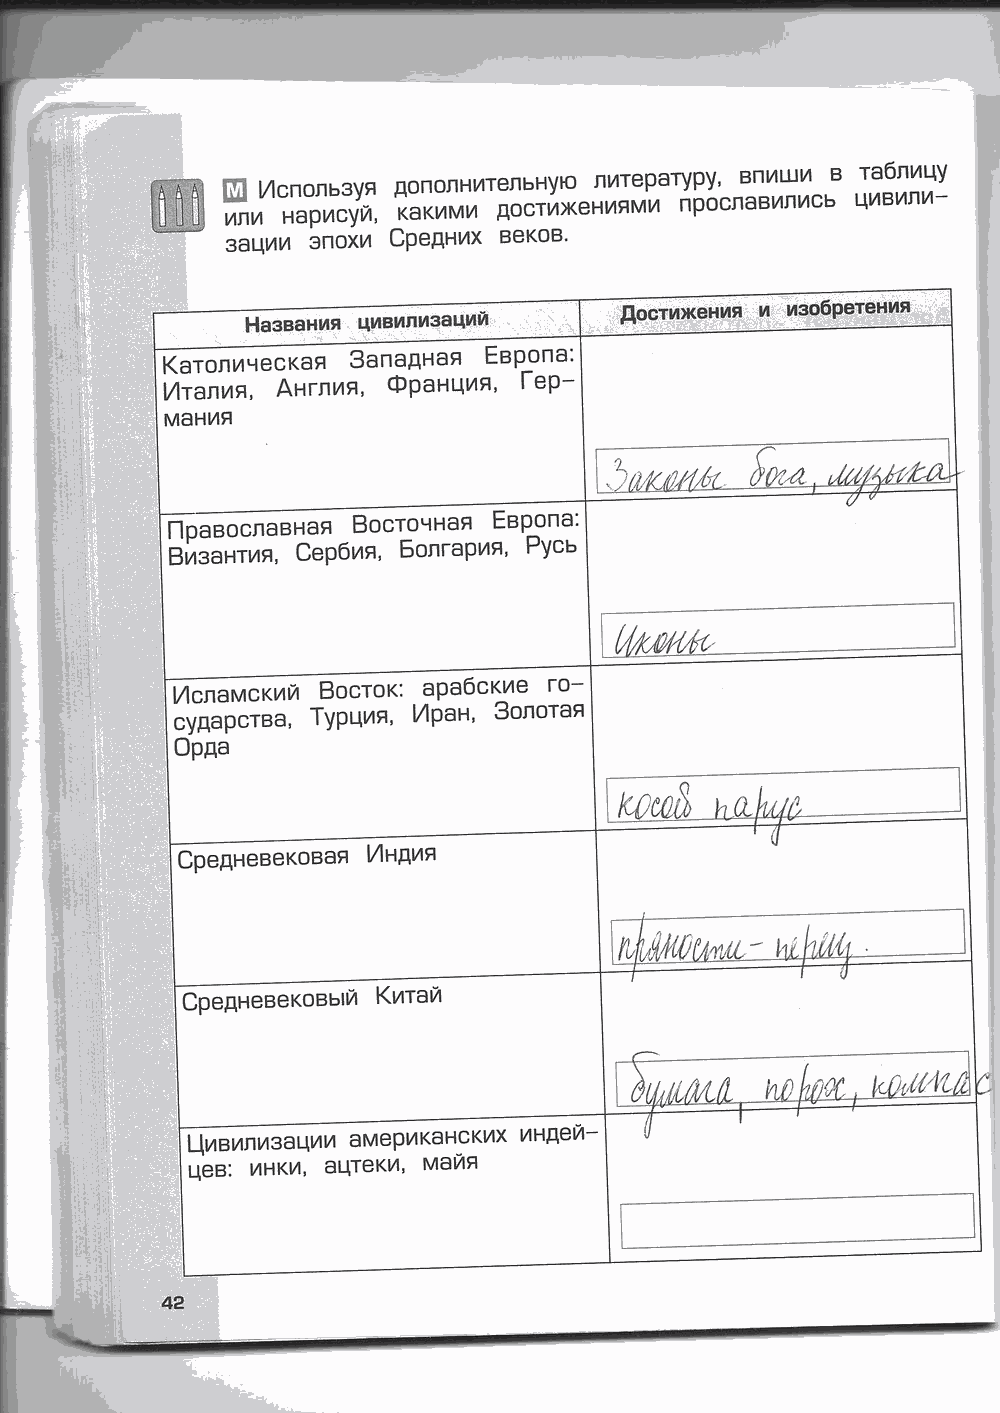 М Используя дополнительную литературу, впиши в таблицу
или нарисуй, какими достижениями прославились цивили-
зации эпохи Средних веков.
Названия цивилизаций Достижения и изобретения
Католическая Западная Европа:
Италия, Англия, Франция, Гер-
мания
Законы бога, музыка
Православная Восточная Европа:
Византия, Сербия, Болгария, Русь
Иконы
Исламский Восток: арабские го-
сударства, Турция, Иран, Золотая
Орда
косой парус
Средневековая Индия
пряности - перец.
Средневековый Китай
бумага, порох, компас
Цивилизации американских индей-
цев: инки, ацтеки, майя
42